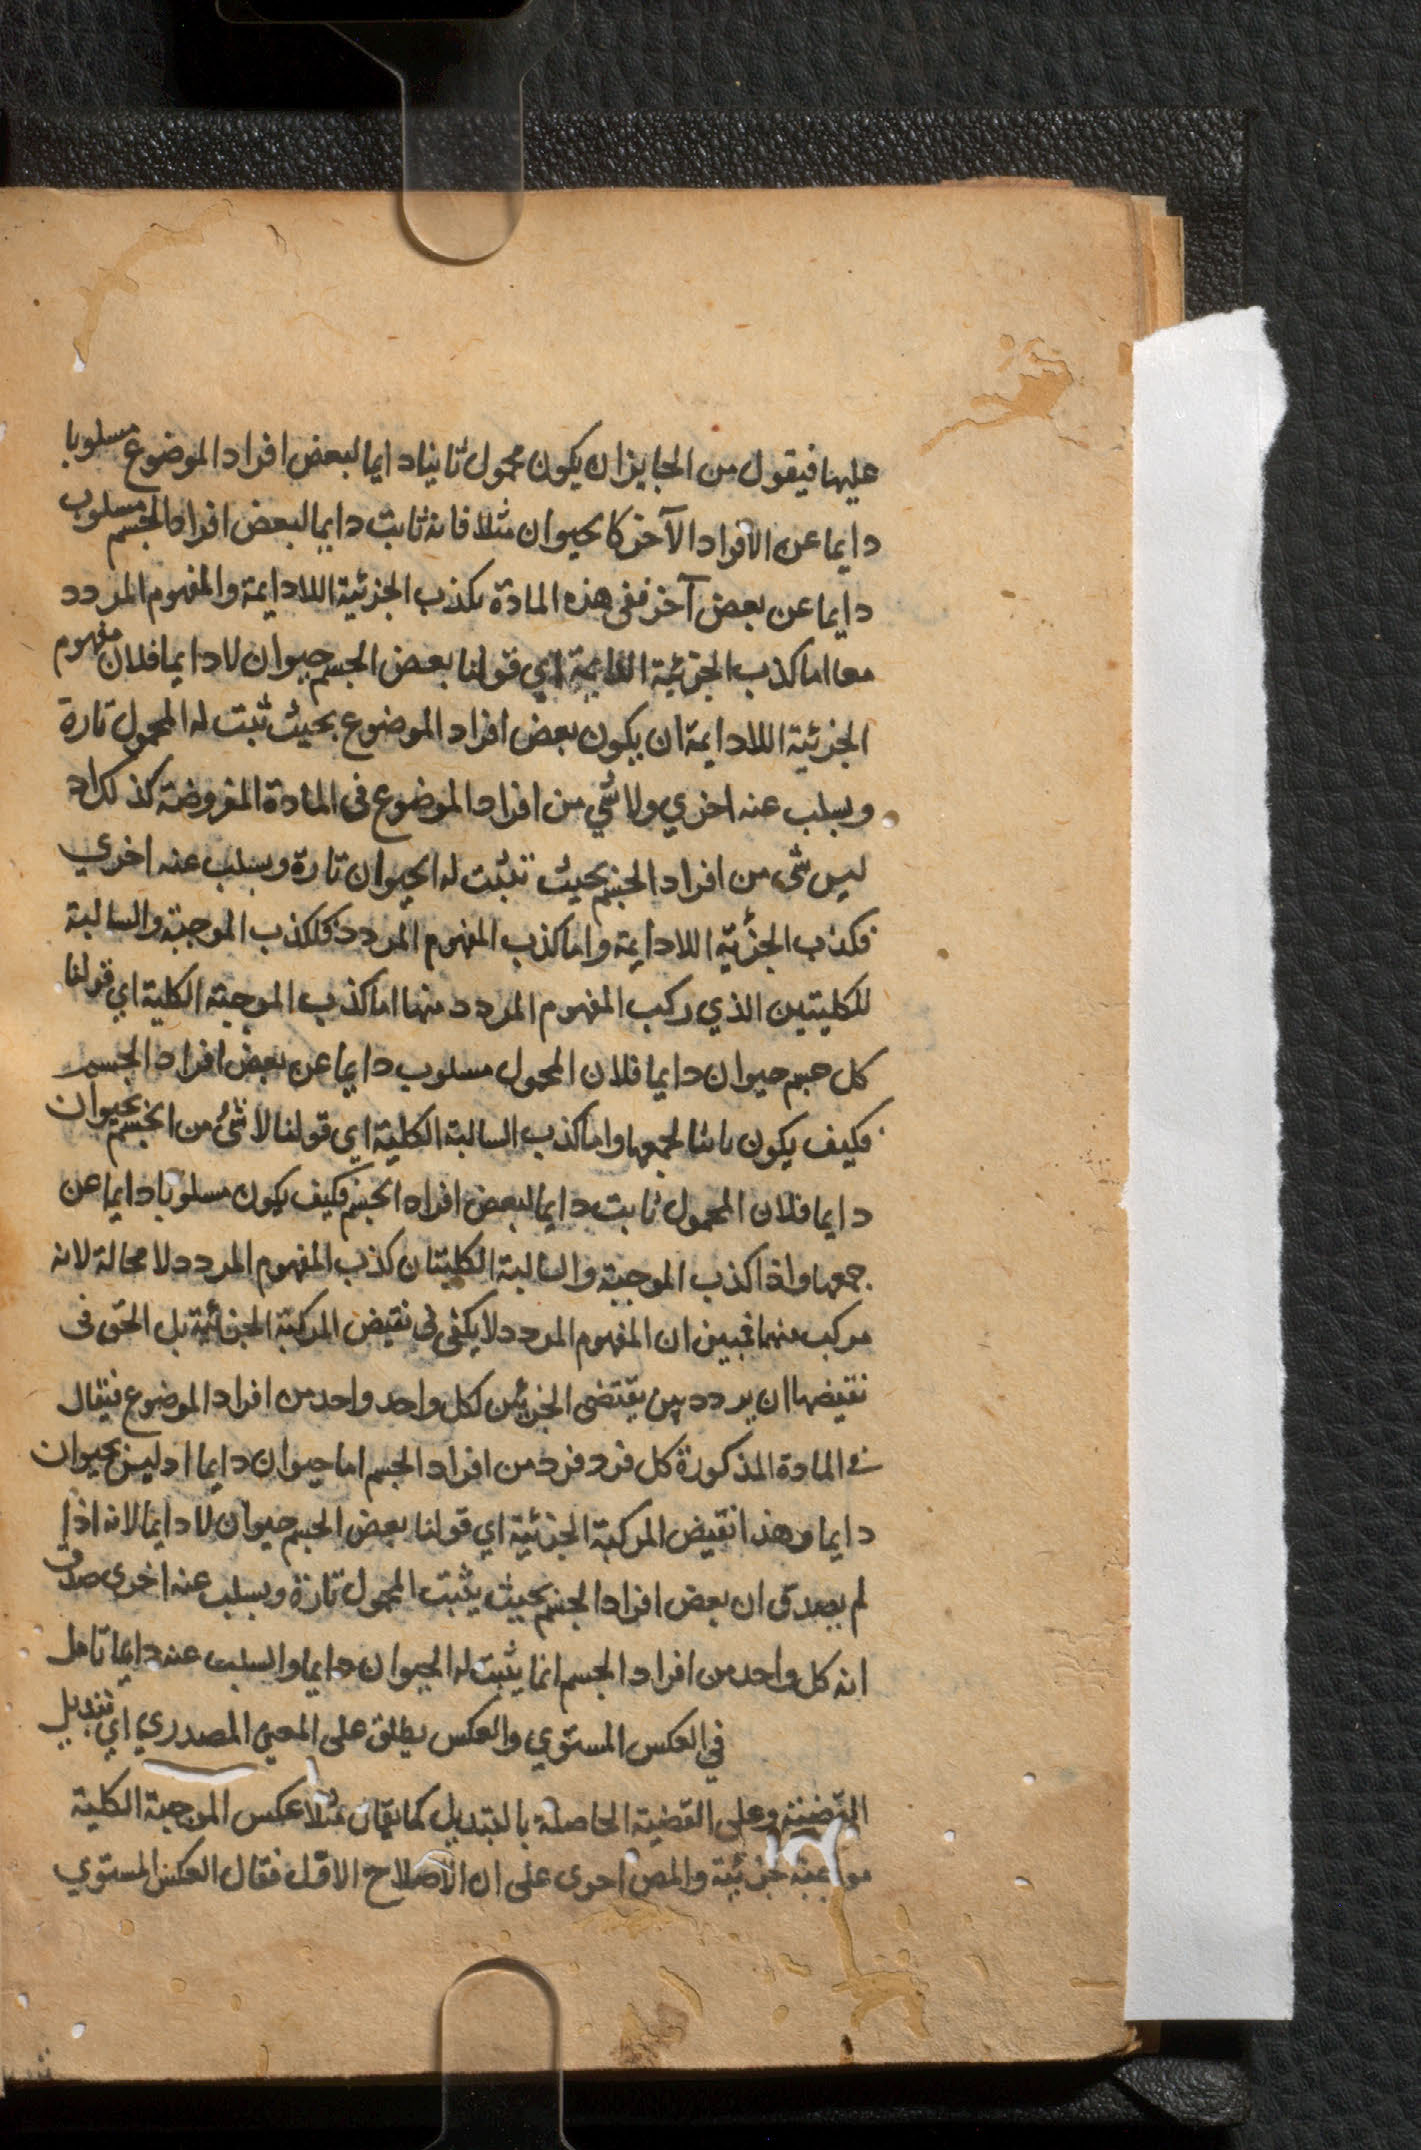 عليها فيقول من الجايز ان يكون محمول ثابتا دايما لبعض افراد الموضوع مسلوبا
دايما عن الافراد الآخر كالحيوان مثلا فانه ثابت دايما لبعض افراد الجسم مسلوب
دايما عن بعض آخر ففي هذه المادة يكذب الجزئية اللادايمة والمفهوم المردد
معا اما كذب الجزئية اللادايمة اي قولنا بعض الجسم حيوان لا دايما فلان مفهوم
الجزئية اللادايمة ان يكون بعض افراد الموضوع بحيث ثبت له المحمول تارة
ويسلب عنه اخري ولا شي من افراد الموضوع في المادة المفروضة كذلك اد
ليس شئ من افراد الجسم بحيث تثبت له الحيوان تارة ويسلب عنه اخري
فكذب الجزئية اللادايمة واما كذب المفهوم المردد فلكذب الموجبة والسالبة
للكليتين الذي ركب المفهوم المردد منها اما كذب الموجبة الكلية اي قولنا
كل جسم حيوان دايما فلان المحمول مسلوب دايما عن بعض افراد الجسم
فكيف يكون ثابتا لجمعها واما كذب السالبة الكلية اي قولنا لا شئ من الجسم بحيوان
دايما فلان المحمول ثابت دايما لبعض افراد الجسم فكيف يكون مسلوبا دايما عن
جمعها واذا كذب الموجبة والسالبة الكليتان كذب المفهوم المردد لا محالة لانه
مركب منهما فتبين ان المفهوم المردد لا يكفي في نقيض المركبة الجزئية بل الحق في
نقيضها ان يردد بين يقتضي الجزئين لكل واحد واحد من افراد الموضوع فيقال
في المادة المذكورة كل فرد فرد من افراد الجسم اما حيوان دايما او ليس بحيوان
دايما وهذا نقيض المركبة الجزئية اي قولنا بعض الجسم حيوان لا دايما لانه اذا
لم يصدق ان بعض افراد الجسم بحيث يثبت المحمول تارة ويسلب عنه اخرى صدق
انه كل واحد من افراد الجسم انما يثبت له الحيوان دايما والسلب عنه دايما تامل
في العكس المستوي والعكس يطلق على المعنى المصدري اي تبديل
القضية وعلى القضية الحاصلة بالتبديل كما يقال مثلا عكس الموجبة الكلية
موجبة جزئية والمص اجرى على ان الاصلاح الاول فقال العكس المستوي